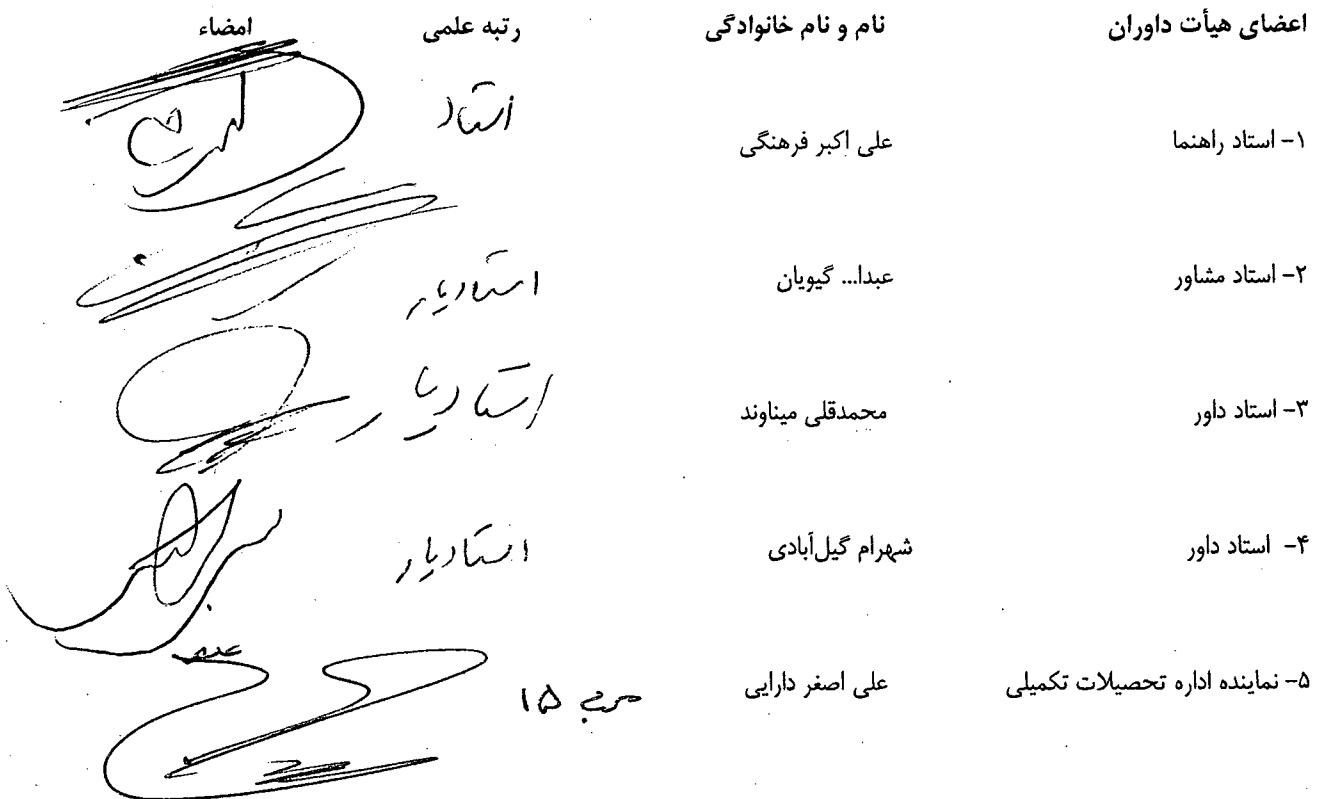 اعضای هیأت داوران نام و نام خانوادگی رتبه علمی امضاء
۱- استاد راهنما علی اکبر فرهنگی استاد
۲- استاد مشاور عبدا... گیویان استادیار
۳- استاد داور محمدقلی میناوند استادیار
۴- استاد داور شهرام گیل‌آبادی استادیار
۵- نماینده اداره تحصیلات تکمیلی علی اصغر دارایی